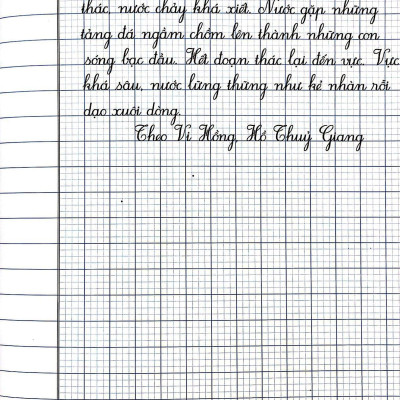 thác, nước chảy khá xiết. Nước gặp những
tảng đá ngầm chồm lên thành những con
sóng bạc đầu. Hết đoạn thác lại đến vực. Vực
khá sâu, nước lững thững như kẻ nhàn rỗi
dạo xuôi dòng.
Theo Vi Hồng, Hồ Thuỷ Giang